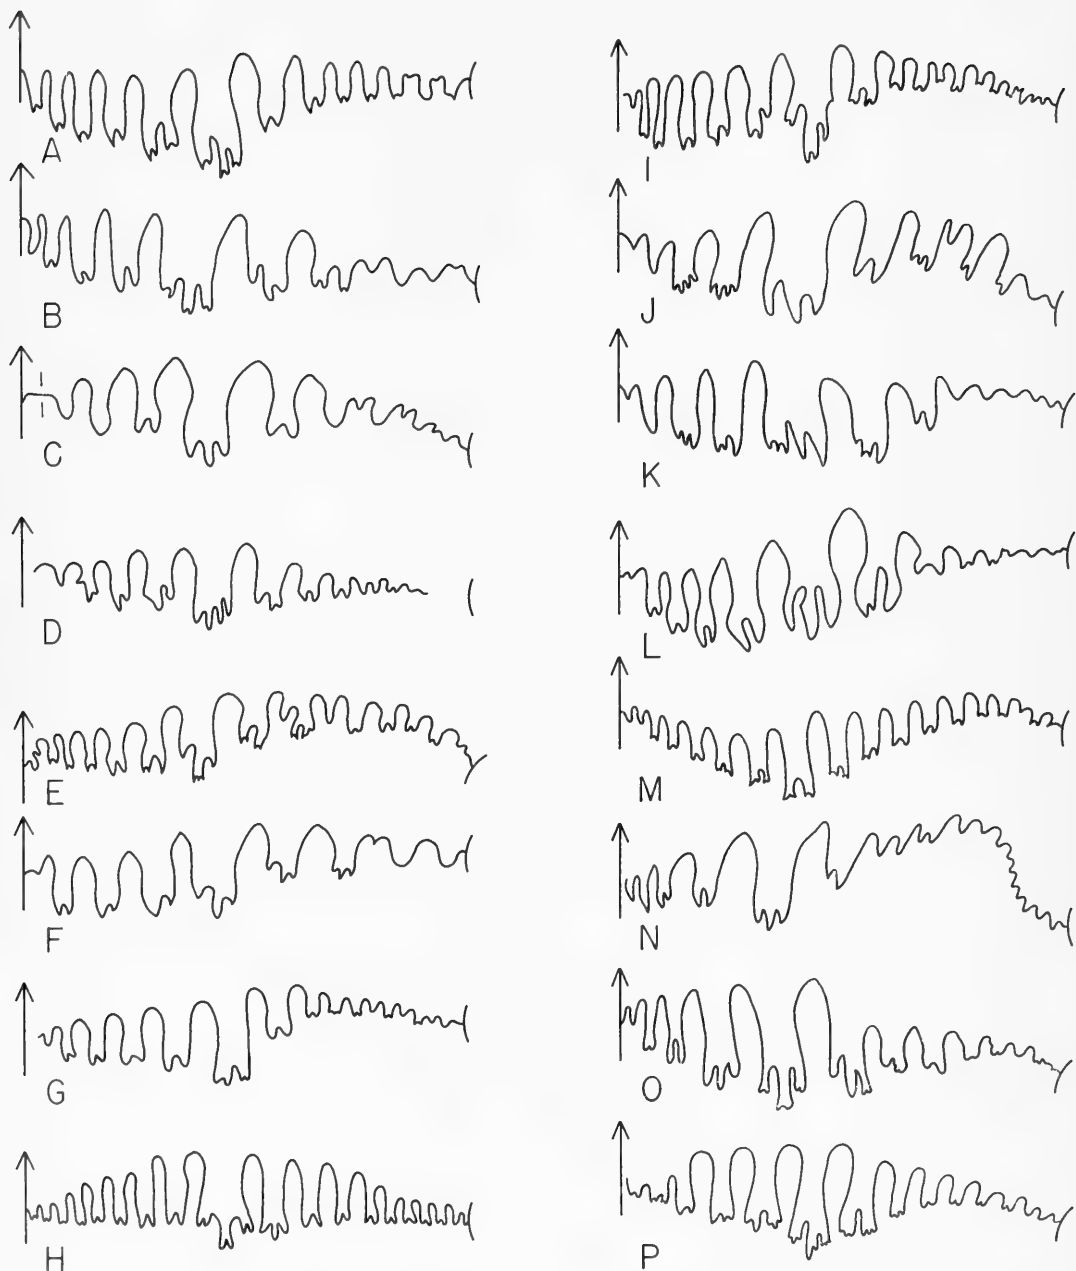 A
B
C
D
E
F
G
H
I
J
K
L
M
N
O
P